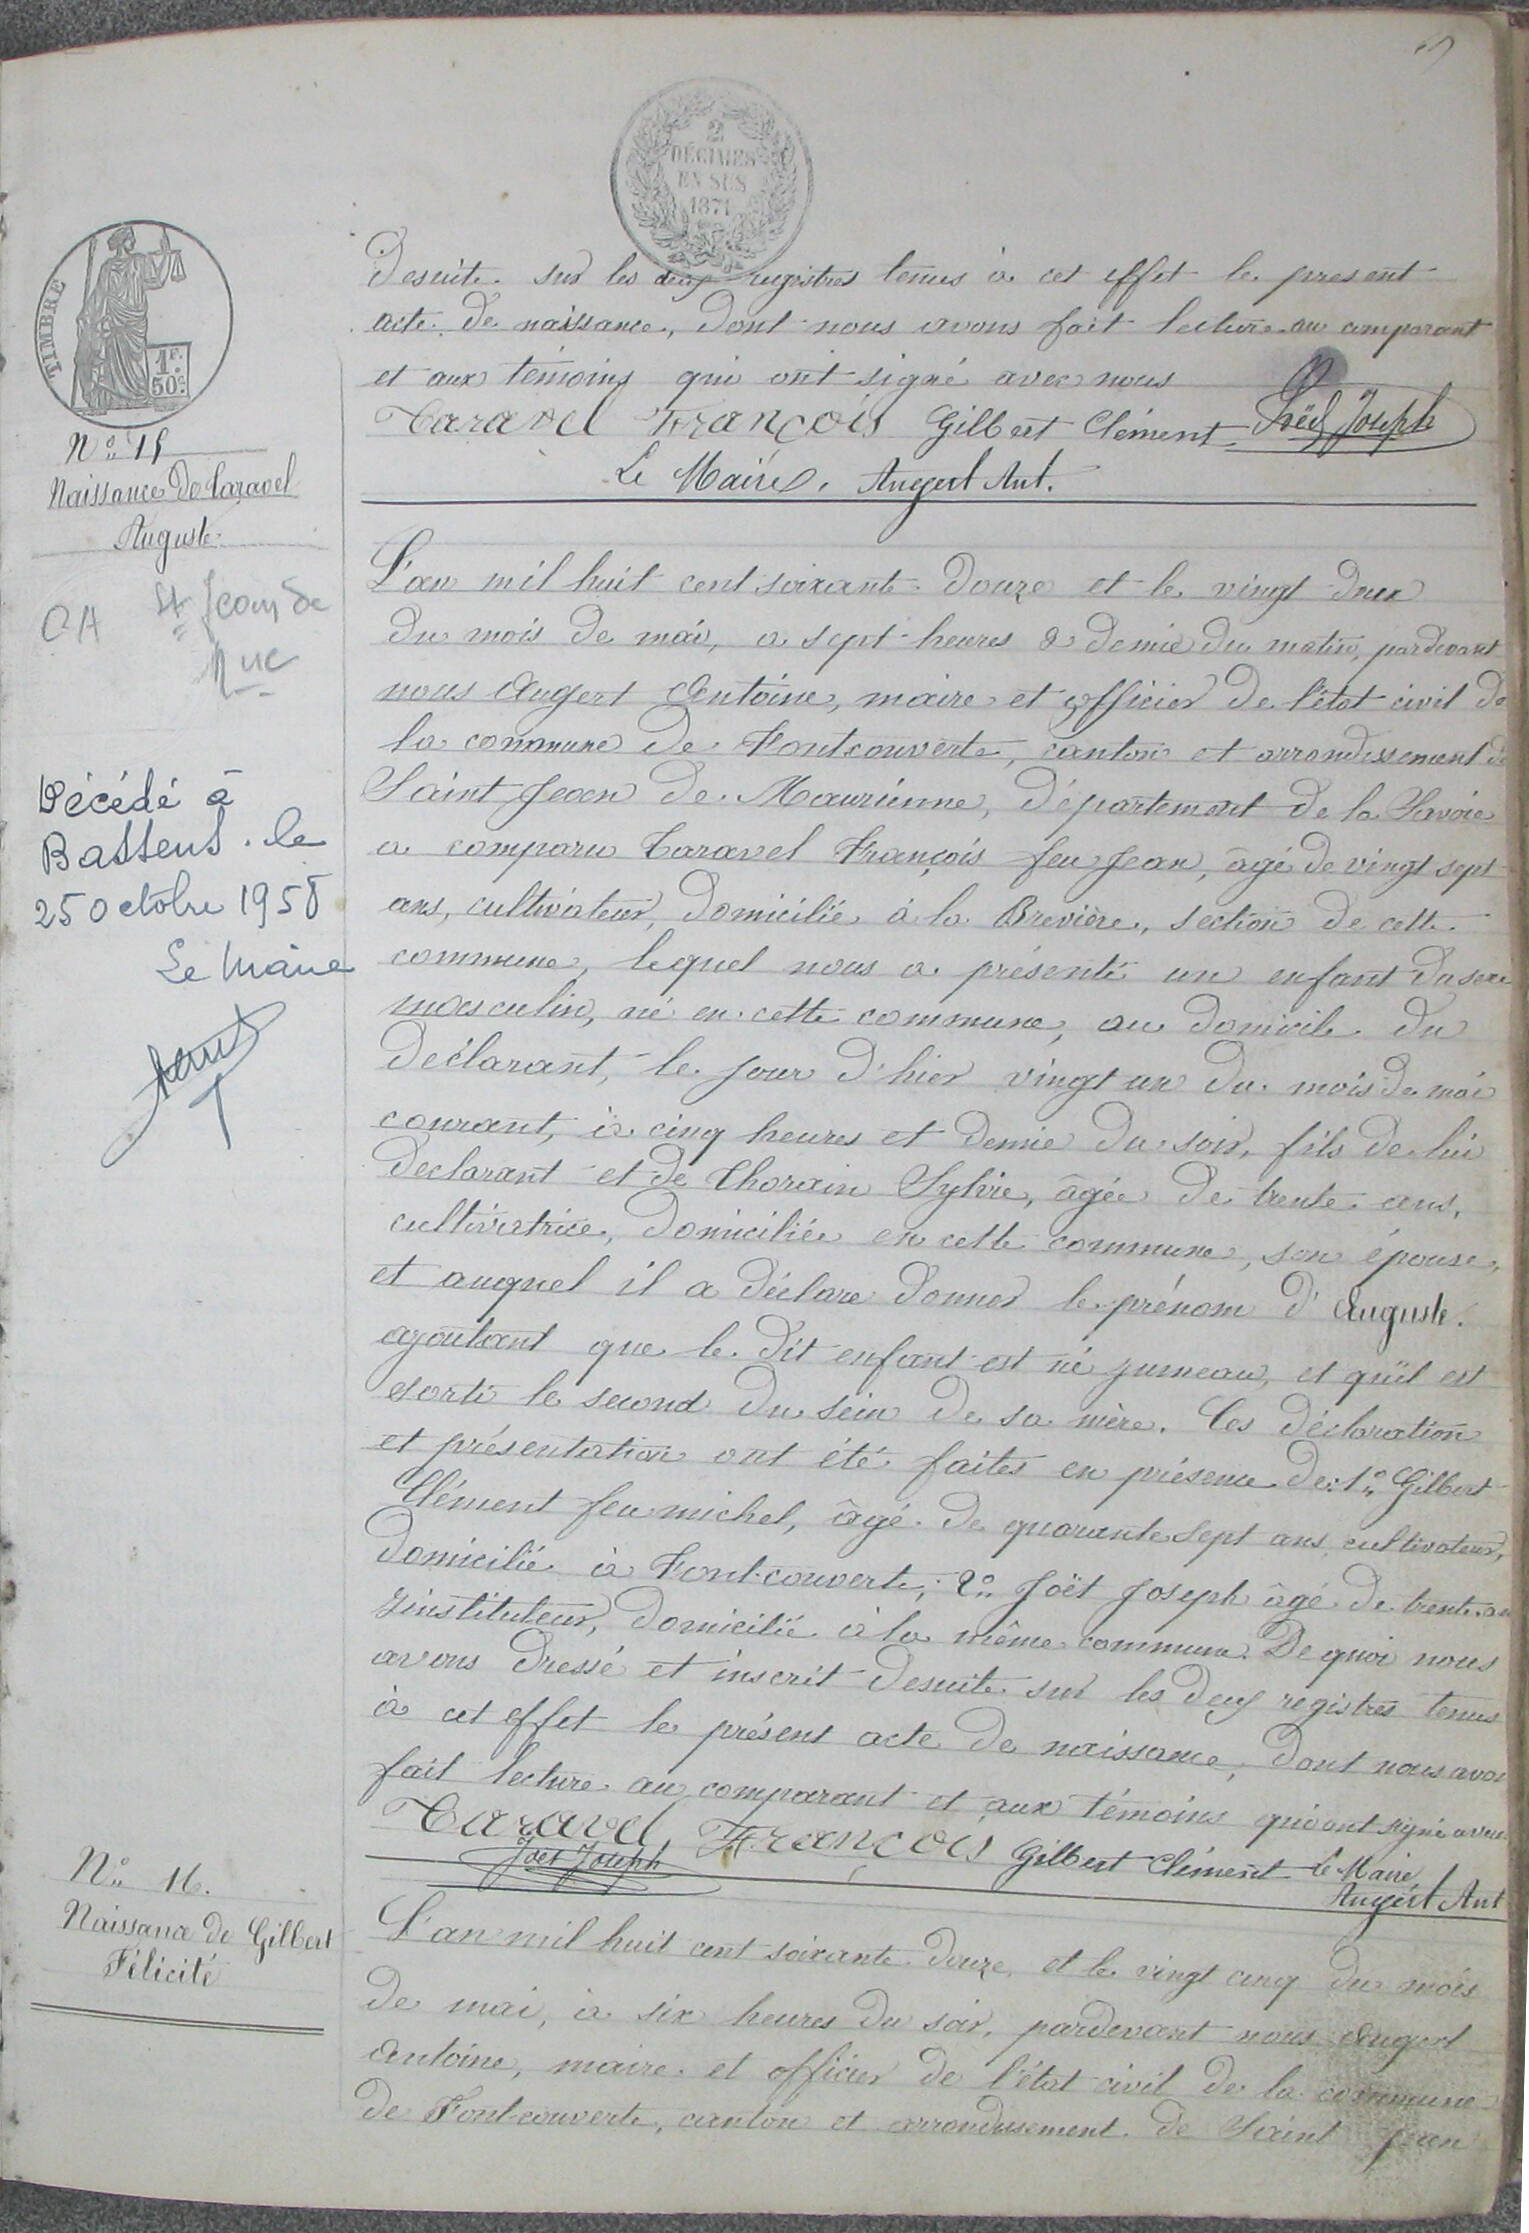 2
DÉCIMES
EN SUS
1871
TIMBRE
1F.
50c.
desuite sur les deux registres tenus à cet effet le present
acte de naissance, dont nous avons fait lecture au comparant
et aux témoins qui ont signé avec nous
Taravel François Gilbert Clément Joët Joseph
Le Maire, Augert Ant.
N° 15
Naissance de Taravel
Auguste
St Jean de
Décédé à
Bassens le
25 octobre 1958
Le Maire
L'an mil huit cent soixante douze et le vingt deux
du mois de mai, a sept heures & demie du matin, pardevant
nous Augert Antoine, maire et officier de l'état civil de
la commune de Fontcouverte, canton et arrondissement de
Saint Jean de Maurienne, département de la Savoie
a comparu Taravel François feu Jean, âgé de vingt sept
ans, cultivateur, domicilié à la Brevière, section de cette
commune, lequel nous a présenté un enfant du sexe
masculin, né en cette commune, au domicile du
déclarant, le jour d'hier vingt un du mois de mai
courant, à cinq heures et demie du soir, fils de lui
declarant et de Thorain Sylvie, âgée de trente ans,
cultivatrice, domiciliée en cette commune, son épouse,
et auquel il a déclare donner le prénom d'Auguste.
ajoutant que le dit enfant est né jumeau, et qu'il est
sorti le second du sein de sa mère. Ces déclaration
et présentation ont été faites en présence de: 1° Gilbert
Clément feu michel, âgé de quarante sept ans, cultivateur,
domicilié à Font-couverte; 2° Joët Joseph âgé de trente an
instituteur, domicilié à la même commune. De quoi nous
avons dressé et inscrit desuite sur les deux registres tenus
à cet effet le présent acte de naissance, dont nous avons
fait lecture au comparant et aux témoins qui ont signé avec
Taravel François Gilbert Clément Le Maire,
Joët Joseph Augert Ant
N° 16.
Naissance de Gilbert
Félicité
L'an mil huit cent soixante douze, et le vingt cinq du mois
de mai, à six heures du soir, pardevant nous Augert
Antoine, maire et officier de l'état civil de la commune
de Font-couverte, canton et arrondissement de Saint Jean